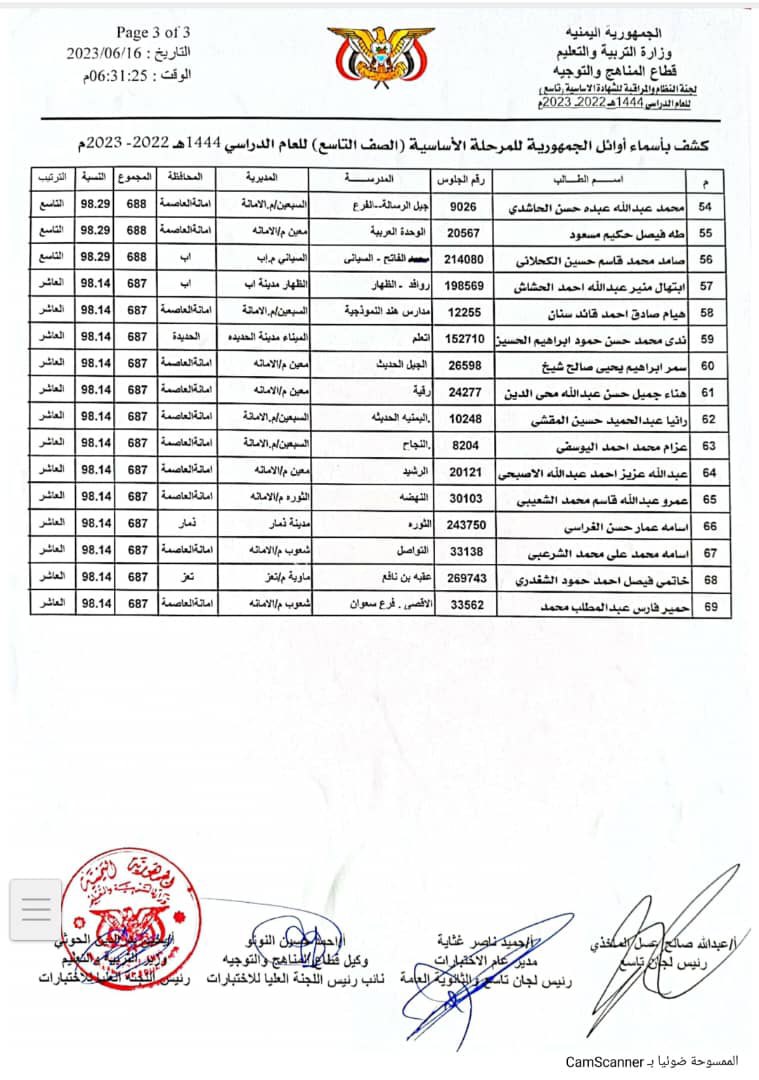 الجمهورية اليمنيه
وزارة التربية والتعليم
قطاع المناهج والتوجيه
لجنة النظام والمراقبة للشهادة الاساسية (تاسع)
للعام الدراسي 1444هـ 2022ـ 2023م
Page 3 of 3
التاريخ : 2023/06/16
الوقت : 06:31:25م
كشف بأسماء أوائل الجمهورية للمرحلة الأساسية (الصف التاسع) للعام الدراسي 1444هـ 2022- 2023م
م اســـم الطـــالب رقم الجلوس المدرســـة المديرية المحافظة المجموع النسبة الترتيب
54 محمد عبدالله عبده حسن الحاشدي 9026 جيل الرسالة--الفرع السبعين/م.الامانة امانةالعاصمة 688 98.29 التاسع
55 طه فيصل حكيم مسعود 20567 الوحدة العربية معين م/الامانه امانةالعاصمة 688 98.29 التاسع
56 صامد محمد قاسم حسين الكحلاني 214080 الفاتح - السياني السياني م.إب اب 688 98.29 التاسع
57 ابتهال منير عبدالله احمد الحشاش 198569 روافد - الظهار الظهار مدينة اب اب 687 98.14 العاشر
58 هيام صادق احمد قائد سنان 12255 مدارس هند النموذجية السبعين/م.الامانة امانةالعاصمة 687 98.14 العاشر
59 ندى محمد حسن حمود ابراهيم الحسين 152710 اتعلم الميناء مدينة الحديده الحديدة 687 98.14 العاشر
60 سمر ابراهيم يحيى صالح شيخ 26598 الجيل الحديث معين م/الامانه امانةالعاصمة 687 98.14 العاشر
61 هناء جميل حسن عبدالله محى الدين 24277 رقية معين م/الامانه امانةالعاصمة 687 98.14 العاشر
62 رانيا عبدالحميد حسين المقشي 10248 .اليمنيه الحديثه السبعين/م.الامانة امانةالعاصمة 687 98.14 العاشر
63 عزام محمد احمد اليوسفي 8204 .النجاح السبعين/م.الامانة امانةالعاصمة 687 98.14 العاشر
64 عبدالله عزيز احمد عبدالله الاصبحي 20121 الرشيد معين م/الامانه امانةالعاصمة 687 98.14 العاشر
65 عمرو عبدالله قاسم محمد الشعيبي 30103 النهضه الثوره م/الامانه امانةالعاصمة 687 98.14 العاشر
66 اسامه عمار حسن الغراسي 243750 الثوره مدينة ذمار ذمار 687 98.14 العاشر
67 اسامه محمد على محمد الشرعبي 33138 التواصل شعوب م/الامانه امانةالعاصمة 687 98.14 العاشر
68 خاتمي فيصل احمد حمود الشغدري 269743 عقبه بن نافع ماوية م/تعز تعز 687 98.14 العاشر
69 حمير فارس عبدالمطلب محمد 33562 الاقصى . فرع سعوان شعوب م/الامانه امانةالعاصمة 687 98.14 العاشر
أ/عبدالله صالح
رئيس لجان تاسع
أ/حميد ناصر غثاية
مدير عام الاختبارات
رئيس لجان تاسع والثانوية العامة
أ/احمد حسين النونو
وكيل قطاع المناهج والتوجيه
نائب رئيس اللجنة العليا للاختبارات
الدين الحوثي
وزير التربية والتعليم
رئيس اللجنة العليا للاختبارات
الممسوحة ضوئيا بـ CamScanner